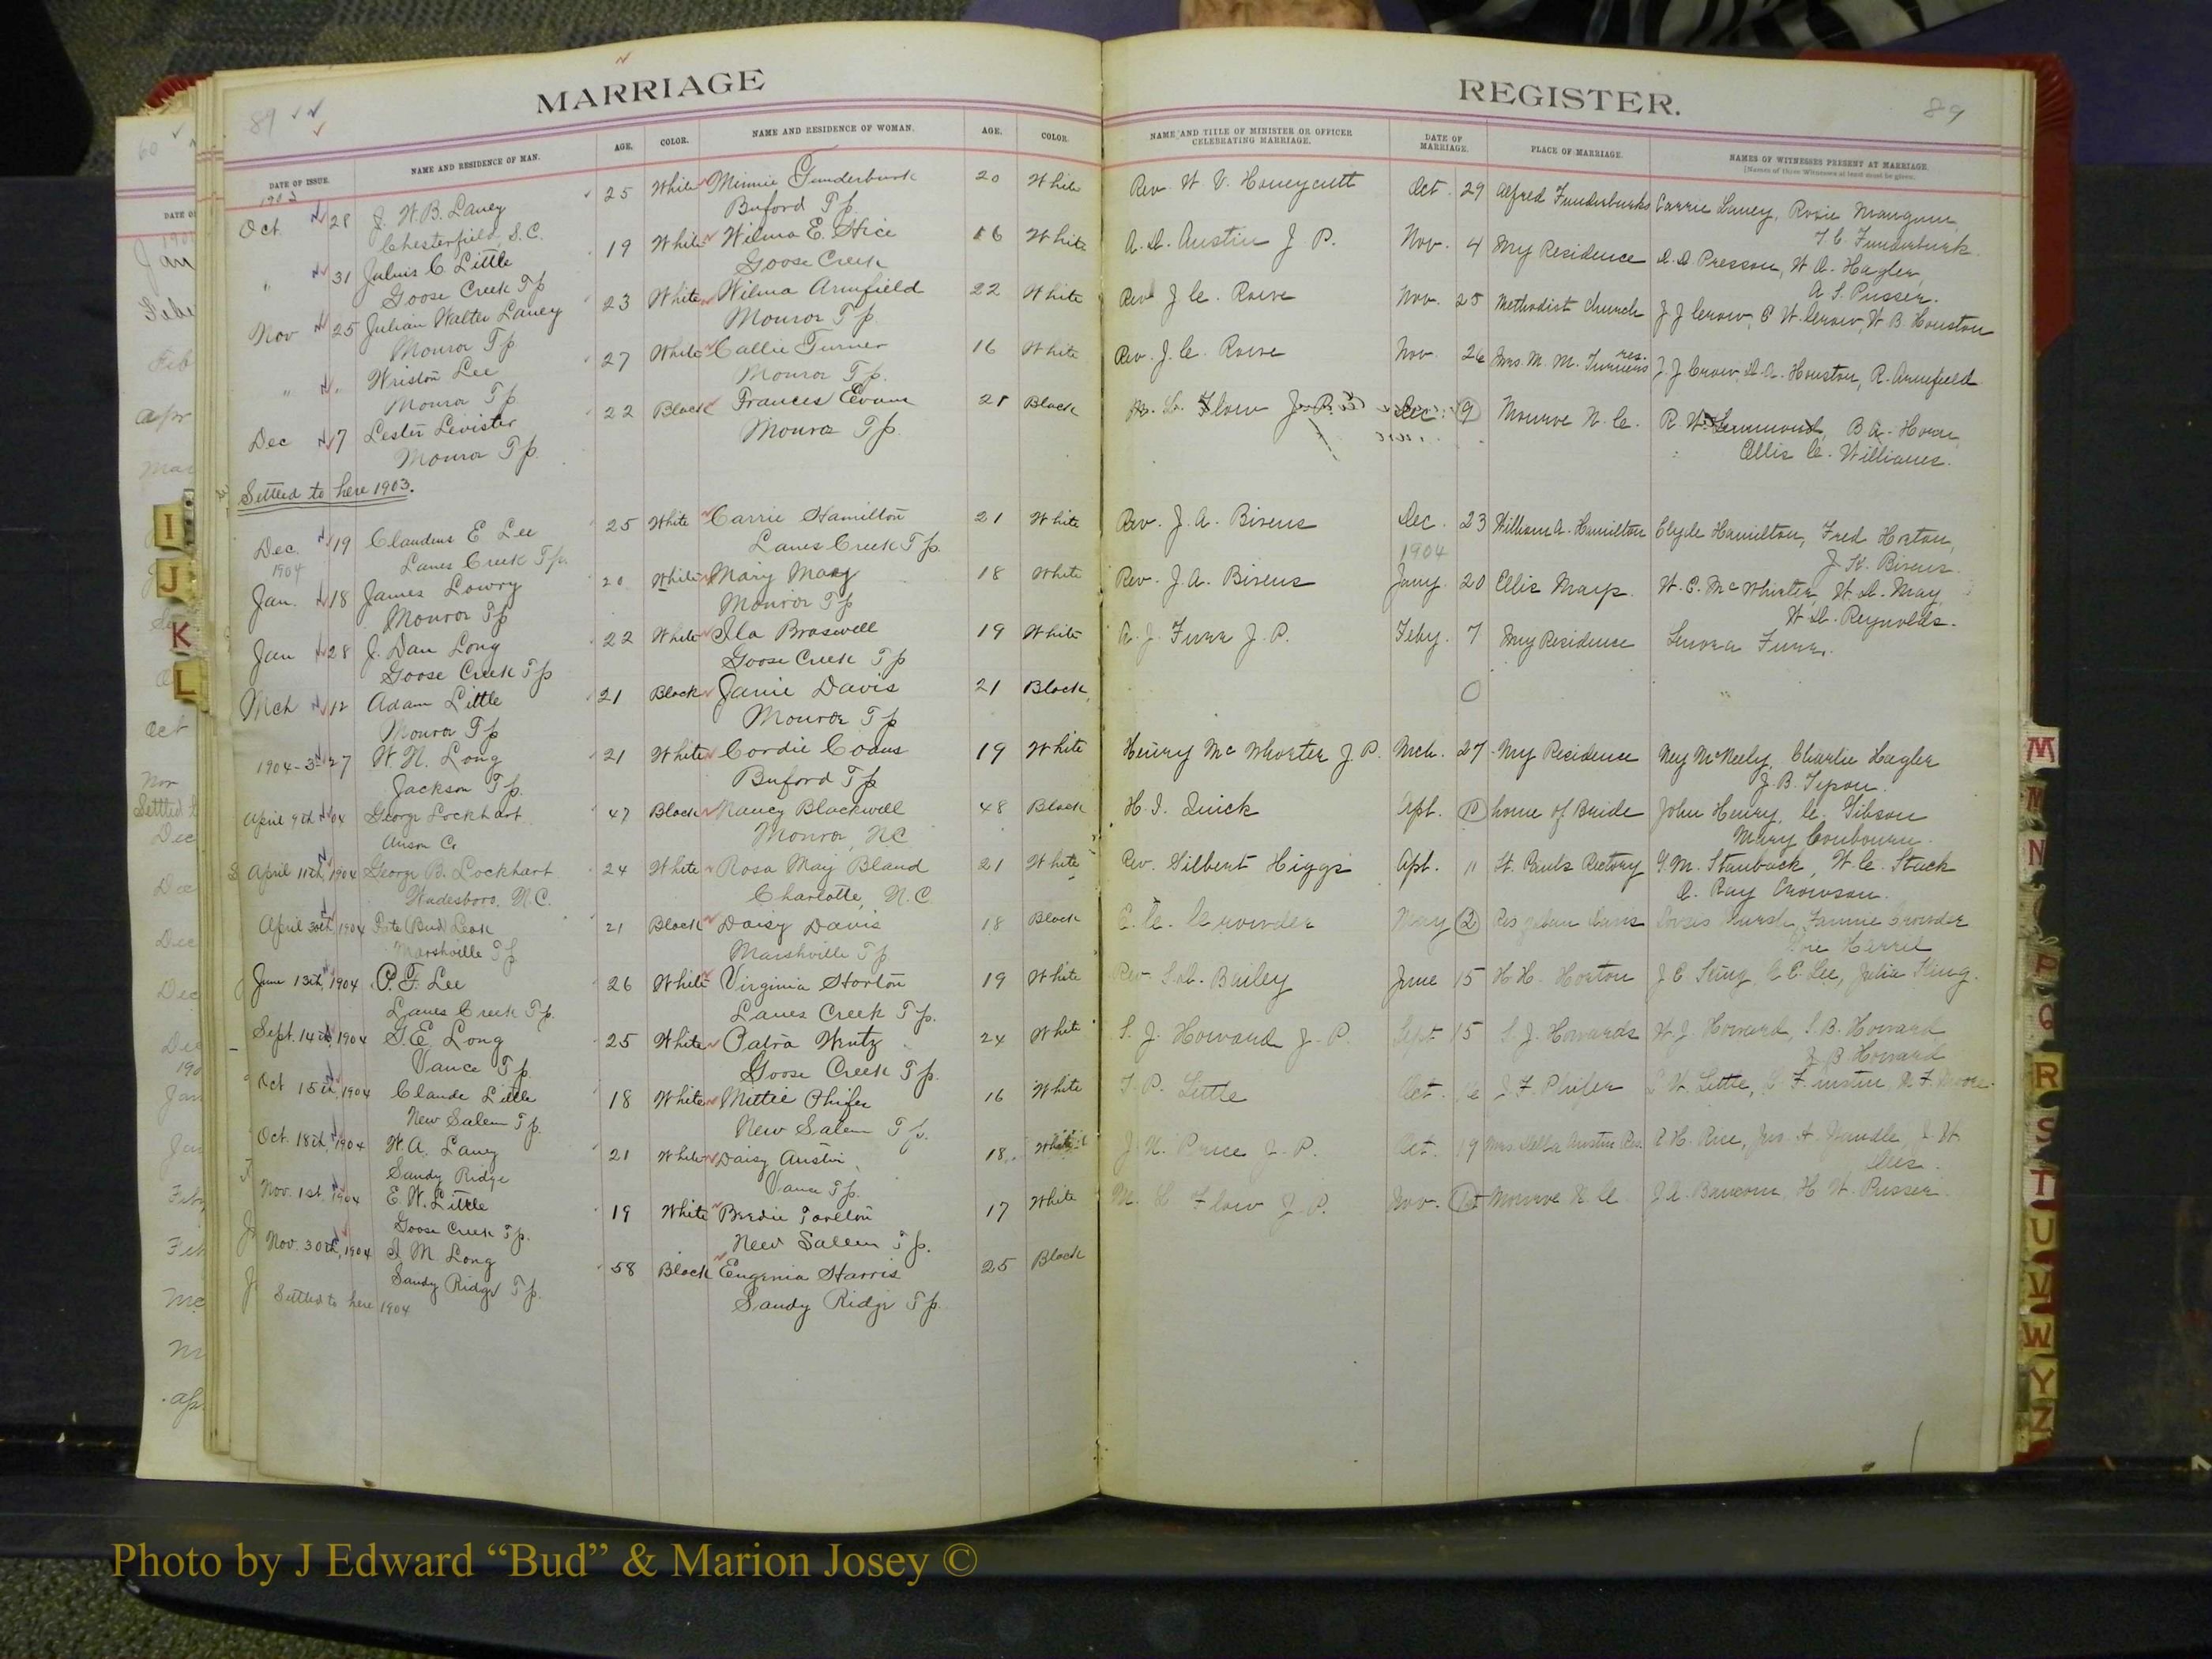 MARRIAGE
89
DATE OF ISSUE. NAME AND RESIDENCE OF MAN. AGE. COLOR. NAME AND RESIDENCE OF WOMAN. AGE. COLOR.
1903
Oct. 28 J. W. B. Laney 25 White Minnie Funderburk 20 White
Chesterfield, S.C. Buford Tp
" 31 Julius C. Little 19 White Wilma E. Hice 16 White
Goose Creek Tp Goose Creek
Nov 25 Julian Walter Laney 23 White Wilma Armfield 22 White
Monroe Tp Monroe Tp
" " Wriston Lee 27 White Callie Turner 16 White
Monroe Tp Monroe Tp.
Dec 7 Lester Levister 22 Black Frances Evans 21 Black
Monroe Tp. Monroe Tp.
Settled to here 1903.
Dec. 19 Claudius E. Lee 25 White Carrie Hamilton 21 White
1904 Lanes Creek Tp. Lanes Creek Tp.
Jan. 18 James Lowry 20 White Mary May 18 White
Monroe Tp Monroe Tp
Jan 28 J. Dan Long 22 White Ila Braswell 19 White
Goose Creek Tp Goose Creek Tp
Mch 12 Adam Little 21 Black Janie Davis 21 Black
Monroe Tp Monroe Tp
1904-3-27 W. N. Long 21 White Cordie Coans 19 White
Jackson Tp. Buford Tp
April 9th 04 George Lockhart 47 Black Nancy Blackwell 48 Black
Anson Co Monroe, NC
April 11th, 1904 George B. Lockhart 24 White Rosa May Bland 21 White
Wadesboro, N.C. Charlotte, N.C.
April 30th, 1904 Pete (Bud) Leak 21 Black Daisy Davis 18 Black
Marshville Tp Marshville Tp
June 13th, 1904 P. F. Lee 26 White Virginia Horton 19 White
Lanes Creek Tp. Lanes Creek Tp.
Sept. 14th, 1904 G. E. Long 25 White Patra Wentz 24 White
Vance Tp. Goose Creek Tp.
Oct 15th, 1904 Claude Little 18 White Mittie Phifer 16 White
New Salem Tp. New Salem Tp.
Oct. 18th, 1904 W. A. Laney 21 White Daisy Austin 18 White
Sandy Ridge Vance Tp.
Nov. 1st, 1904 E. W. Little 19 White Birdie Tarlton 17 White
Goose Creek Tp. New Salem Tp.
Nov. 30th, 1904 I. M. Long 58 Black Eugenia Harris 25 Black
Sandy Ridge Tp. Sandy Ridge Tp.
Settled to here 1904
REGISTER.
89
NAME AND TITLE OF MINISTER OR OFFICER CELEBRATING MARRIAGE. DATE OF MARRIAGE. PLACE OF MARRIAGE. NAMES OF WITNESSES PRESENT AT MARRIAGE.
[Names of three Witnesses at least must be given.
Rev. W. V. Honeycutt Oct. 29 Alfred Funderburks Carrie Laney, Rosie Mangum,
T. C. Funderburk.
A. L. Austin J. P. Nov. 4 My Residence D. A. Presson, W. A. Hagler,
A. S. Pusser.
Rev J. C. Rowe Nov. 25 Methodist Church J J Crow, E W. Crow, W B. Houston
Rev. J. C. Rowe Nov. 26 Mrs. M. M. Turners res. J. J Crow, D. A. Houston, R. Armfield
M. L. Flow J. P. Dec. 9 Monroe N. C. R. W. Lemmond, B A. Horn,
Ellis C. Williams.
Rev. J. A. Bivens Dec. 23 William A. Hamilton Clyde Hamilton, Fred Horton,
J. K. Bivens.
1904
Rev. J. A. Bivens Jany. 20 Ellis Mays. W. E. McWhirter, W. L. May,
W. L. Reynolds.
R. J. Furr J. P. Feby. 7 My Residence Lenora Furr.
Henry McWhorter J. P. Mch. 27 My Residence Ney McNeely, Charlie Hagler
J. B. Tyson.
H. I. Quick Apl. home of Bride John Henry, C. Gibson
Mary Coubourn.
Rev. Gilbert Higgs Apl. 11 St. Pauls Rectory G. M. Stanback, W. C. Stack
C. Ray Crowson.
E. C. Crowder May 2 Fannie Crowder
Harrel
Rev. S. L. Bailey June 15 H H. Horton J C King, C E. Lee, Julia King.
S. J. Howard J. P. Sept 15 S. J. Howards W. J. Howard, S. B. Howard
J. B. Howard
T. P. Little Oct. 16 J. F. Phifer L W. Little, C F. Austin, R. F. Moore.
J. N. Price J. P. Oct. 19 Mrs Della Austin Res. R H. Rice, Jno. A. Yandle, J. W.
Dees.
M. L. Flow J. P. Nov. 1st Monroe N. C. J. C. Baucom, H. W. Pusser.
I
J
K
L
M
N
P
Q
R
S
T
U
V
W
Y
Z
Photo by J Edward “Bud” & Marion Josey ©